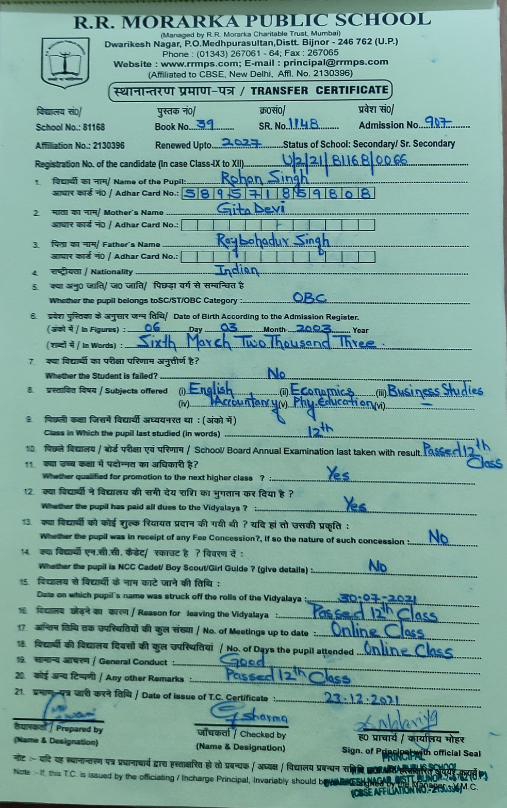 R.R. MORARKA PUBLIC SCHOOL
(Managed by R.R. Morarka Charitable Trust, Mumbai)
Dwarikesh Nagar, P.O.Medhpurasultan,Distt. Bijnor - 246 762 (U.P.)
Phone : (01343) 267061 - 64; Fax : 267065
Website : www.rrmps.com; E-mail : principal@rrmps.com
(Affiliated to CBSE, New Delhi, Affl. No. 2130396)
स्थानान्तरण प्रमाण-पत्र / TRANSFER CERTIFICATE
विद्यालय सं०/ पुस्तक नं०/ क्र०सं०/ प्रवेश सं०/
School No.: 81168 Book No. 39 SR. No. 1148 Admission No. 907
Affiliation No.: 2130396 Renewed Upto 2027 Status of School: Secondary/ Sr. Secondary
Registration No. of the candidate (In case Class-IX to XII) U/2/21/81168/0066
1. विद्यार्थी का नाम/ Name of the Pupil: Rohan Singh
आधार कार्ड नं० / Adhar Card No.: 589571859808
2. माता का नाम/ Mother's Name Gita Devi
आधार कार्ड नं० / Adhar Card No.:
3. पिता का नाम/ Father's Name Raybahadur Singh
आधार कार्ड नं० / Adhar Card No.:
4. राष्ट्रीयता / Nationality Indian
5. क्या अनु0 जाति/ ज0 जाति/ पिछड़ा वर्ग से सम्बन्धित है
Whether the pupil belongs to SC/ST/OBC Category : OBC
6. प्रवेश पुस्तिका के अनुसार जन्म तिथि/ Date of Birth According to the Admission Register.
(अंको में / In Figures) : 06 Day 03 Month 2003 Year
(शब्दों में / In Words) : Sixth March Two Thousand Three.
7. क्या विद्यार्थी का परीक्षा परिणाम अनुत्तीर्ण है?
Whether the Student is failed? No
8. प्रस्तावित विषय / Subjects offered (i) English (ii) Economics (iii) Business Studies
(iv) Accountancy (v) Phy. Education (vi) –
9. पिछली कक्षा जिसमें विद्यार्थी अध्ययनरत था : (अंको में)
Class in Which the pupil last studied (in words) 12th
10. पिछले विद्यालय / बोर्ड परीक्षा एवं परिणाम / School / Board Annual Examination last taken with result Passed 12th Class
11. क्या उच्च कक्षा में पदोन्नत का अधिकारी है?
Whether qualified for promotion to the next higher class ? : Yes
12. क्या विद्यार्थी ने विद्यालय की सभी देय राशि का भुगतान कर दिया है ?
Whether the pupil has paid all dues to the Vidyalaya ? : Yes
13. क्या विद्यार्थी को कोई शुल्क रियायत प्रदान की गयी थी ? यदि हां तो उसकी प्रकृति :
Whether the pupil was in receipt of any Fee Concession?, If so the nature of such concession : No
14. क्या विद्यार्थी एन.सी.सी. कैडेट/ स्काउट है ? विवरण दें :
Whether the pupil is NCC Cadet/ Boy Scout/Girl Guide ? (give details) : No
15. विद्यालय से विद्यार्थी के नाम काटे जाने की तिथि :
Date on which pupil's name was struck off the rolls of the Vidyalaya : 30-07-2021
16. विद्यालय छोड़ने का कारण / Reason for leaving the Vidyalaya Passed 12th Class
17. अन्तिम तिथि तक उपस्थितियों की कुल संख्या / No. of Meetings up to date : Online Class
18. विद्यार्थी की विद्यालय दिवसों की कुल उपस्थितियां / No. of Days the pupil attended Online Class
19. सामान्य आचरण / General Conduct : Good
20. कोई अन्य टिप्पणी / Any other Remarks : Passed 12th Class
21. प्रमाण पत्र जारी करने तिथि / Date of issue of T.C. Certificate : 23-12-2021
तैयारकर्ता / Prepared by जाँचकर्ता / Checked by ह0 प्राचार्य / कार्यालय मोहर
(Name & Designation) (Name & Designation) Sign. of Principal with official Seal
PRINCIPAL
नोट :- यदि यह स्थानान्तरण पत्र प्रधानाचार्य द्वारा हस्ताक्षरित हो तो प्रबन्धक / अध्यक्ष / विद्यालय प्रबन्धन
Note :- If, this T.C. is issued by the officiating / Incharge Principal, Invariably should be
(CBSE AFFILIATION NO.-2130396)